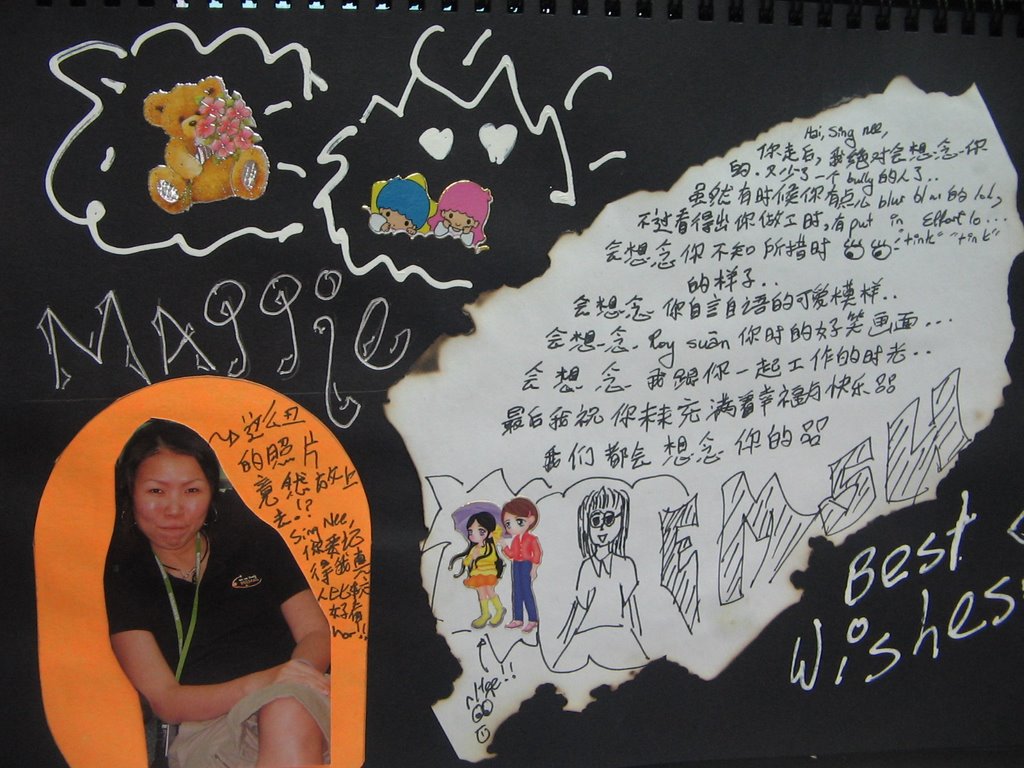 Maggie
这么丑
的照片
竟然放上
去..!?
Sing Nee,
你要记
得我真
人比较
好看
hor!!
Hai, Sing Nee,
你走后, 我绝对会想念你
的. 又少了一个 bully 的人了..
虽然有时候你有点 blur blur 的 lol,
不过看得出你做工时, 有 put in effort lo...
会想念你不知所措时 "tink" "tink"
的样子..
会想念你自言自语的可爱模样..
会想念 Roy suan 你时的好笑画面...
会想念我跟你一起工作的时光..
最后我祝你未来充满着幸福与快乐
我们都会想念你的
Best
Wishes